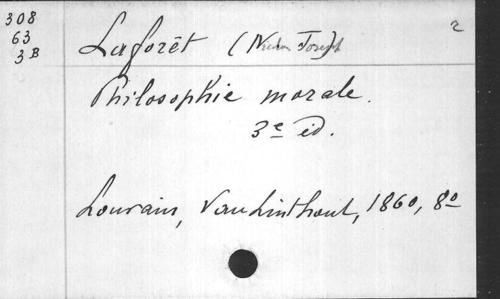 308
63
3 B
2
Laforêt (Nicolas Joseph)
Philosophie morale.
3e éd.
Louvain, Vanlinthout, 1860, 8o